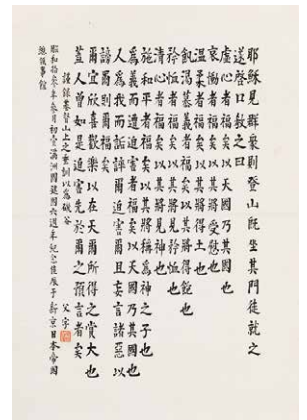 耶穌見群衆則登山既坐其門徒就之
遂啓口教之曰
虛心者福矣以天國乃其國也
哀慟者福矣以其將受慰也
溫柔者福矣以其將得土也
飢渴慕義者福矣以其將得飽也
矜恤者福矣以其將見矜恤也
清心者福矣以其將見神也
施和平者福矣以其將稱爲神之子也
爲義而遭迫害者福矣以天國乃其國也
人爲我而詬誶爾迫害爾且妄言諸惡以
爾宜欣喜歡樂以在天爾所得之賞大也
蓋人曾如是迫害先於爾之預言者矣
謹錄基督山上之垂訓以爲硯谷
父字
昭和拾叁年叁月初 滿洲國建國六週年紀念 于新京日本帝國
總領事館